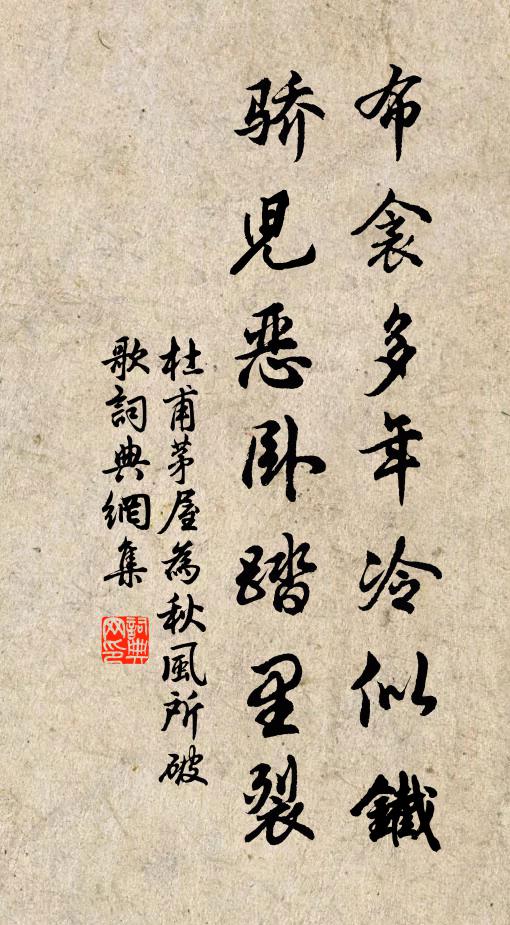 布衾多年冷似鐵
骄児恶卧踏里裂
杜甫茅屋為秋風所破
歌詞典網集
詞典
网印